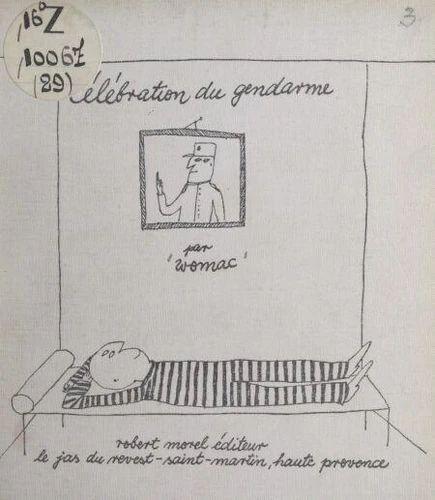 16° Z
10067
(29)
3
élébration du gendarme
par
'womac'
robert morel éditeur
le jas du revest-saint-martin, haute provence